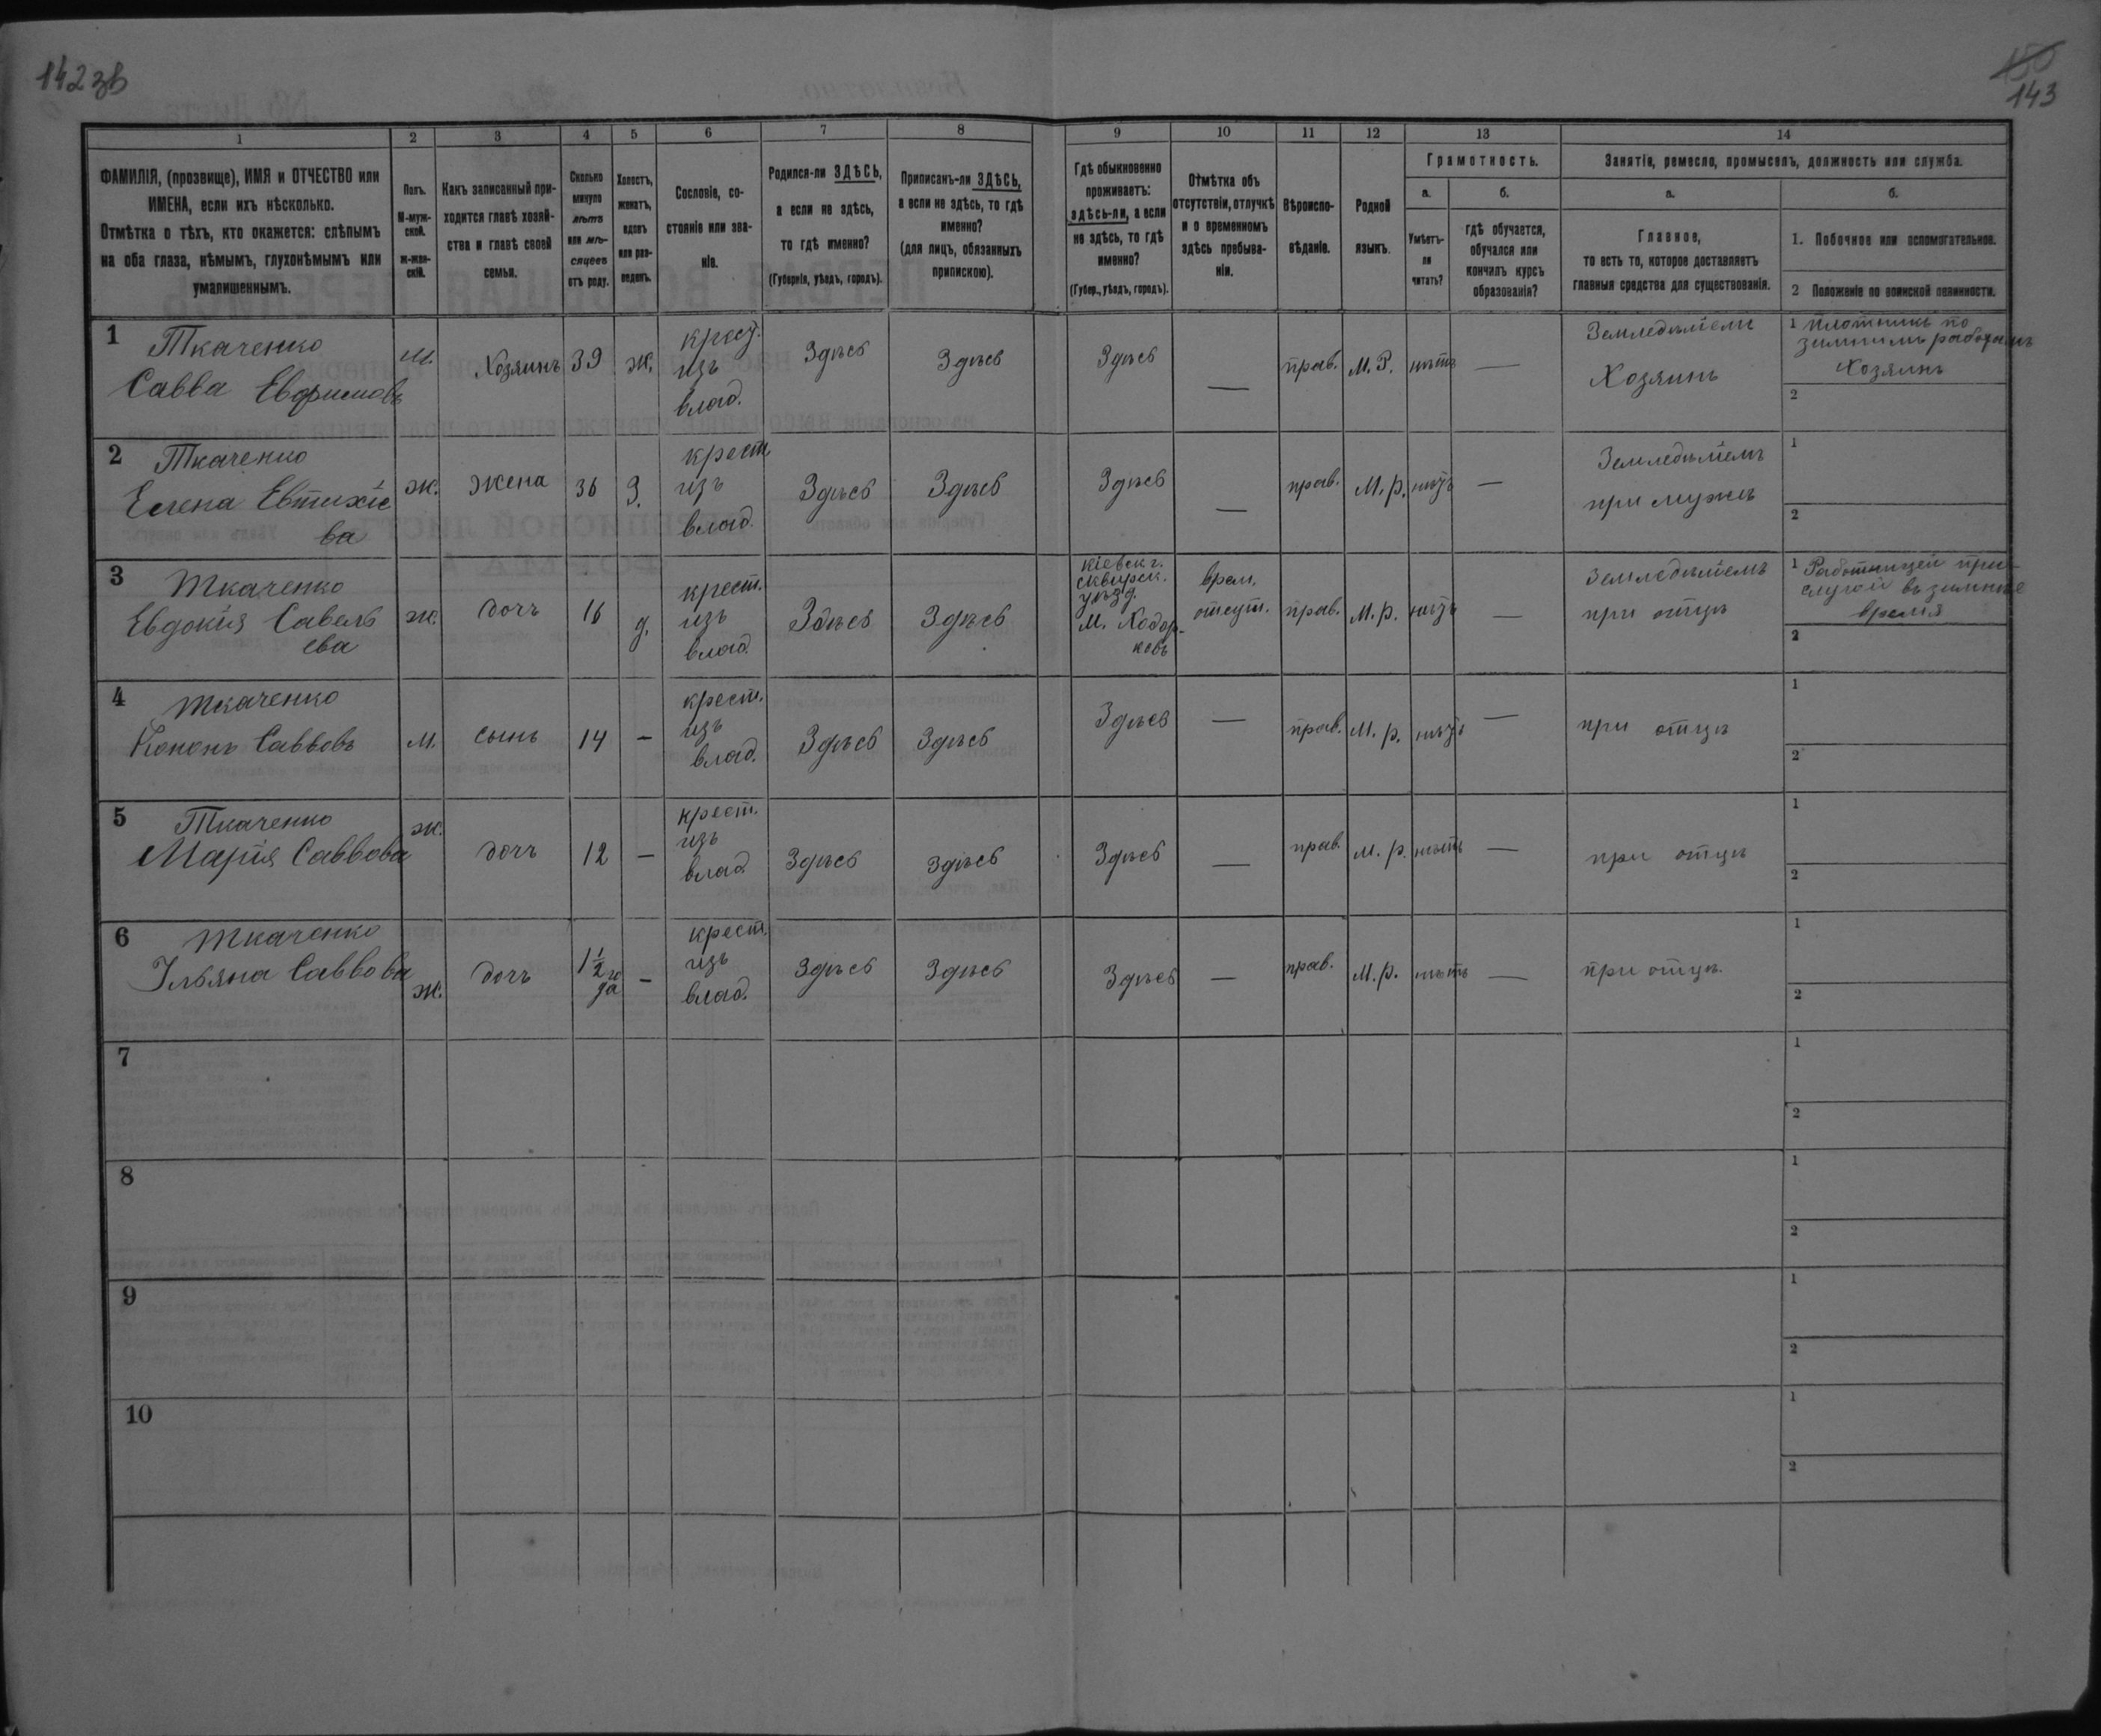 142 зв
150
143
1
2
3
4
5
6
7
8
9
10
11
12
13
14
ФАМИЛІЯ, (прозвище), ИМЯ и ОТЧЕСТВО или
ИМЕНА, если ихъ нѣсколько.
Отмѣтка о тѣхъ, кто окажется: слѣпымъ
на оба глаза, нѣмымъ, глухонѣмымъ или
умалишеннымъ.
Полъ.
М-муж-
ской.
Ж-жен-
скій.
Какъ записанный при-
ходится главѣ хозяй-
ства и главѣ своей
семьи.
Сколько
минуло
лѣтъ
или мѣ-
сяцевъ
отъ роду.
Холостъ,
женатъ,
вдовъ
или раз-
веденъ.
Сословіе, со-
стояніе или зва-
ніе.
Родился-ли ЗДѢСЬ,
а если не здѣсь,
то гдѣ именно?
(Губернія, уѣздъ, городъ).
Приписанъ-ли ЗДѢСЬ,
а если не здѣсь, то гдѣ
именно?
(для лицъ, обязанныхъ
припискою).
Гдѣ обыкновенно
проживаетъ:
здѣсь-ли, а если
не здѣсь, то гдѣ
именно?
(Губер., уѣздъ, городъ).
Отмѣтка объ
отсутствіи, отлучкѣ
и о временномъ
здѣсь пребыва-
ніи.
Вѣроиспо-
вѣданіе.
Родной
языкъ.
Грамотность.
а.
б.
Умѣетъ-
ли
читать?
гдѣ обучается,
обучался или
кончилъ курсъ
образованія?
Занятіе, ремесло, промыселъ, должность или служба.
а.
б.
Главное,
то есть то, которое доставляетъ
главныя средства для существованія.
1. Побочное или вспомогательное.
2 Положеніе по воинской повинности.
1 Ткаченко
Савва Евфимовъ
м.
Хозяинъ
39
ж.
крест.
изъ
влад.
Здѣсь
Здѣсь
Здѣсь
—
прав.
М. Р.
нѣтъ
—
Земледѣліемъ
Хозяинъ
1 Плотникъ по
зимнимъ работамъ
Хозяинъ
2
2 Ткаченко
Елена Евтихіе
ва
ж.
жена
36
З.
крест.
изъ
влад.
Здѣсь
Здѣсь
Здѣсь
—
прав.
М. р.
нѣтъ
—
Земледѣліемъ
при мужѣ
1
2
3 Ткаченко
Евдокія Савель
ева
ж.
дочь
16
д.
крест.
изъ
влад.
Здѣсь
Здѣсь
Кіевск г.
Сквирск.
уѣзд.
М. Ходор-
ковъ
врем.
отсут.
прав.
М. р.
нѣтъ
—
Земледѣліемъ
при отцѣ
1 Работницей при-
слугой въ зимнее
время
2
4 Ткаченко
Кононъ Саввовъ
м.
сынъ
14
—
крест.
изъ
влад.
Здѣсь
Здѣсь
Здѣсь
—
прав.
М. р.
нѣтъ
—
при отцѣ
1
2
5 Ткаченко
Марія Саввова
ж.
дочь
12
—
крест.
изъ
влад.
Здѣсь
Здѣсь
Здѣсь
—
прав.
М. р.
нѣтъ
—
при отцѣ
1
2
6 Ткаченко
Ульяна Саввова
ж.
дочь
1½ го
да
—
крест.
изъ
влад.
Здѣсь
Здѣсь
Здѣсь
—
прав.
М. р.
нѣтъ
—
при отцѣ.
1
2
7
1
2
8
1
2
9
1
2
10
1
2